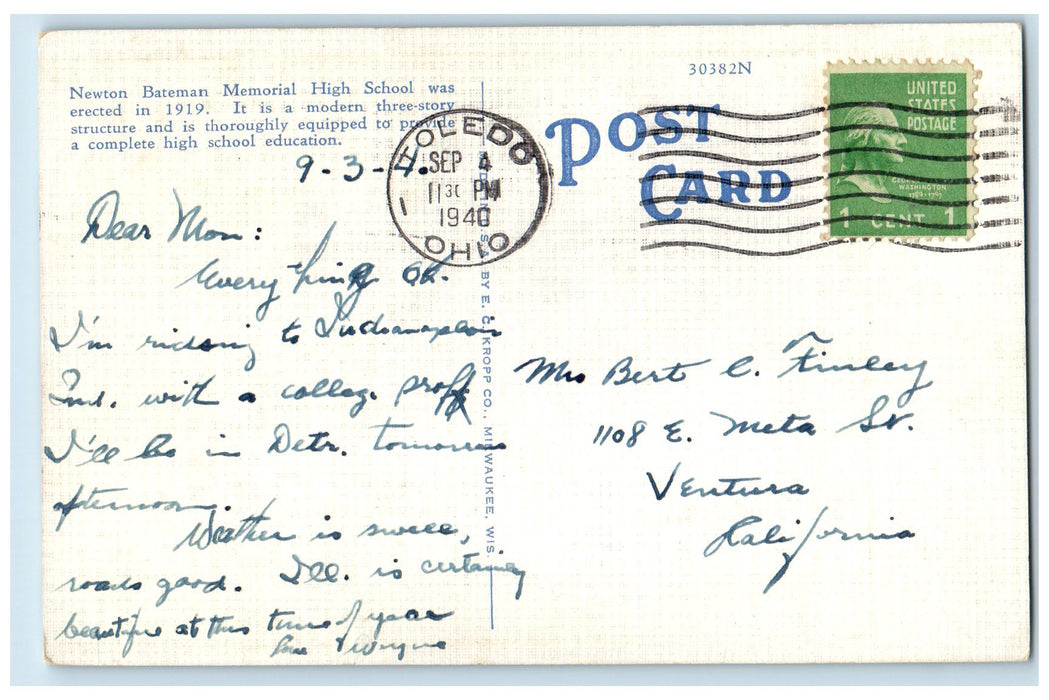 Newton Bateman Memorial High School was
erected in 1919. It is a modern three-story
structure and is thoroughly equipped to provide
a complete high school education.
30382N
POST
CARD
UNITED
STATES
POSTAGE
GEORGE
WASHINGTON
1789-1797
1 CENT 1
TOLEDO
SEP 4
11 30 PM
1940
OHIO
1
9-3-40
Dear Mom:
Everything Ok.
I'm riding to Indianapolis
Ind. with a college proff
I'll be in Detr. tomorrow
afternoon.
Weather is swell,
roads good. Ill. is certainly
beautiful at this time of year
Love Wayne
BY E. C. KROPP CO., MILWAUKEE, WIS.
Mrs Bert C. Finley
1108 E. Meta St.
Ventura
California